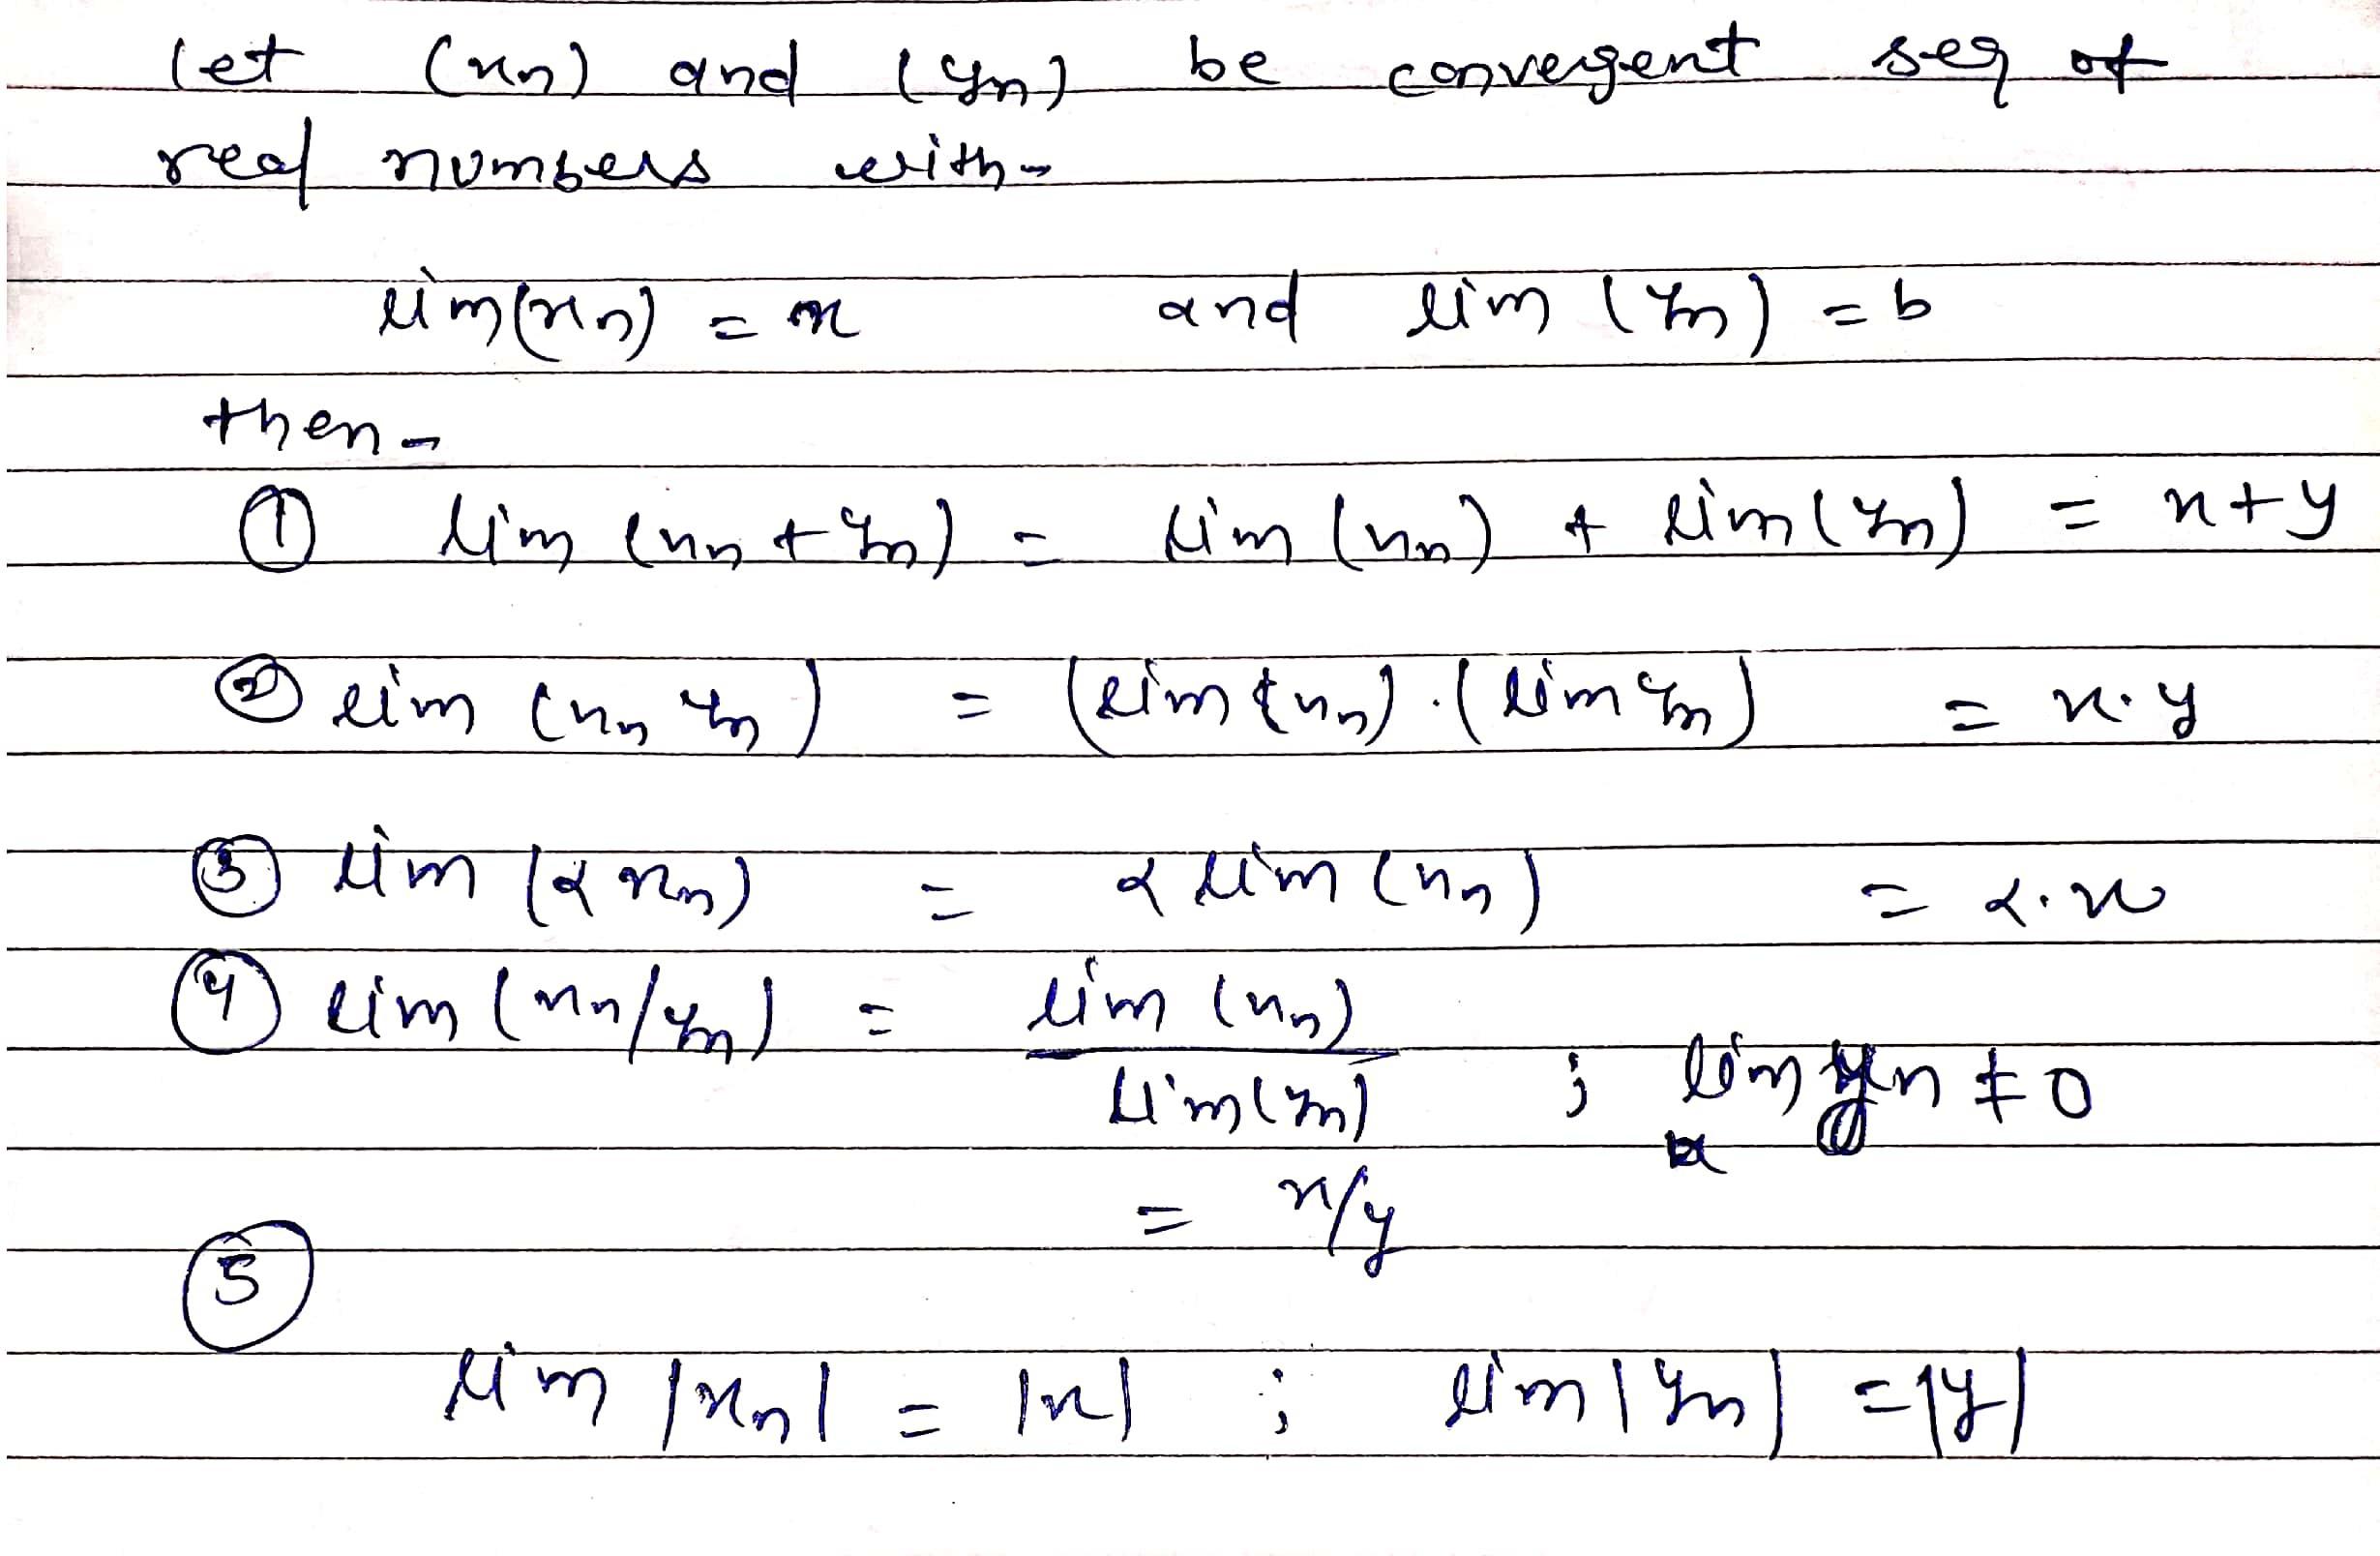 let (xn) and (yn) be convergent seq of
real numbers with-
lim(xn) = x and lim (yn) = b
then-
① lim (xn + yn) = lim (xn) + lim(yn) = x+y
② lim (xn yn) = (lim xn).(lim yn) = x.y
③ lim (α xn) = α lim (xn) = α.x
④ lim (xn/yn) = lim (xn)
lim(yn) ; lim yn ≠ 0
= x/y
⑤
lim |xn| = |x| ; lim |yn| = |y|